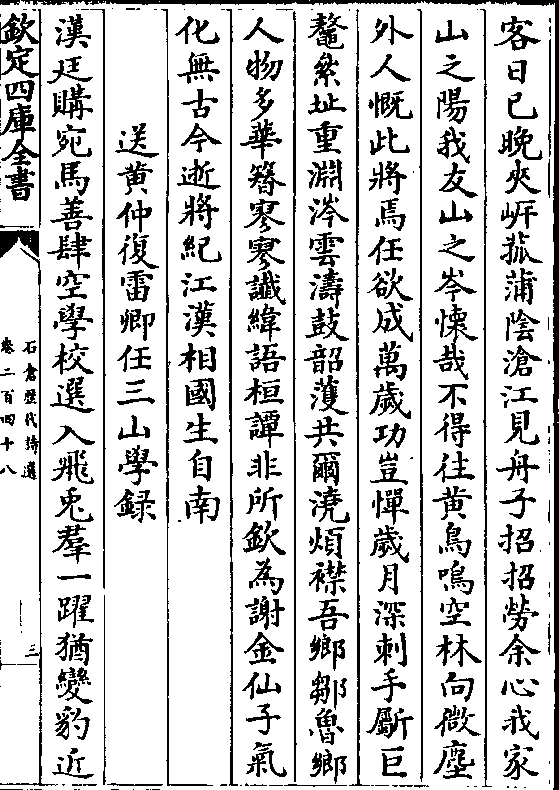 客日已晚夾㟁菰蒲陰滄江見舟子招招勞余心我家
山之陽我友山之岑懐哉不得往黄鳥鳴空林向微塵
外人慨此將焉任欲成萬歲功豈憚歲月深刺手斸巨
鼇絫址重淵涔雲濤鼓韶頀共爾澆煩襟吾鄉鄒魯鄉
人物多華簪寥寥讖緯語桓譚非所欽為謝金仙子氣
化無古今逝將紀江漢相國生自南
送黄仲復雷卿任三山學録
漢廷購宛馬善肆空學校選入飛兎羣一躍猶變豹近
欽定四庫全書
石倉歴代詩選
卷二百四十八
三